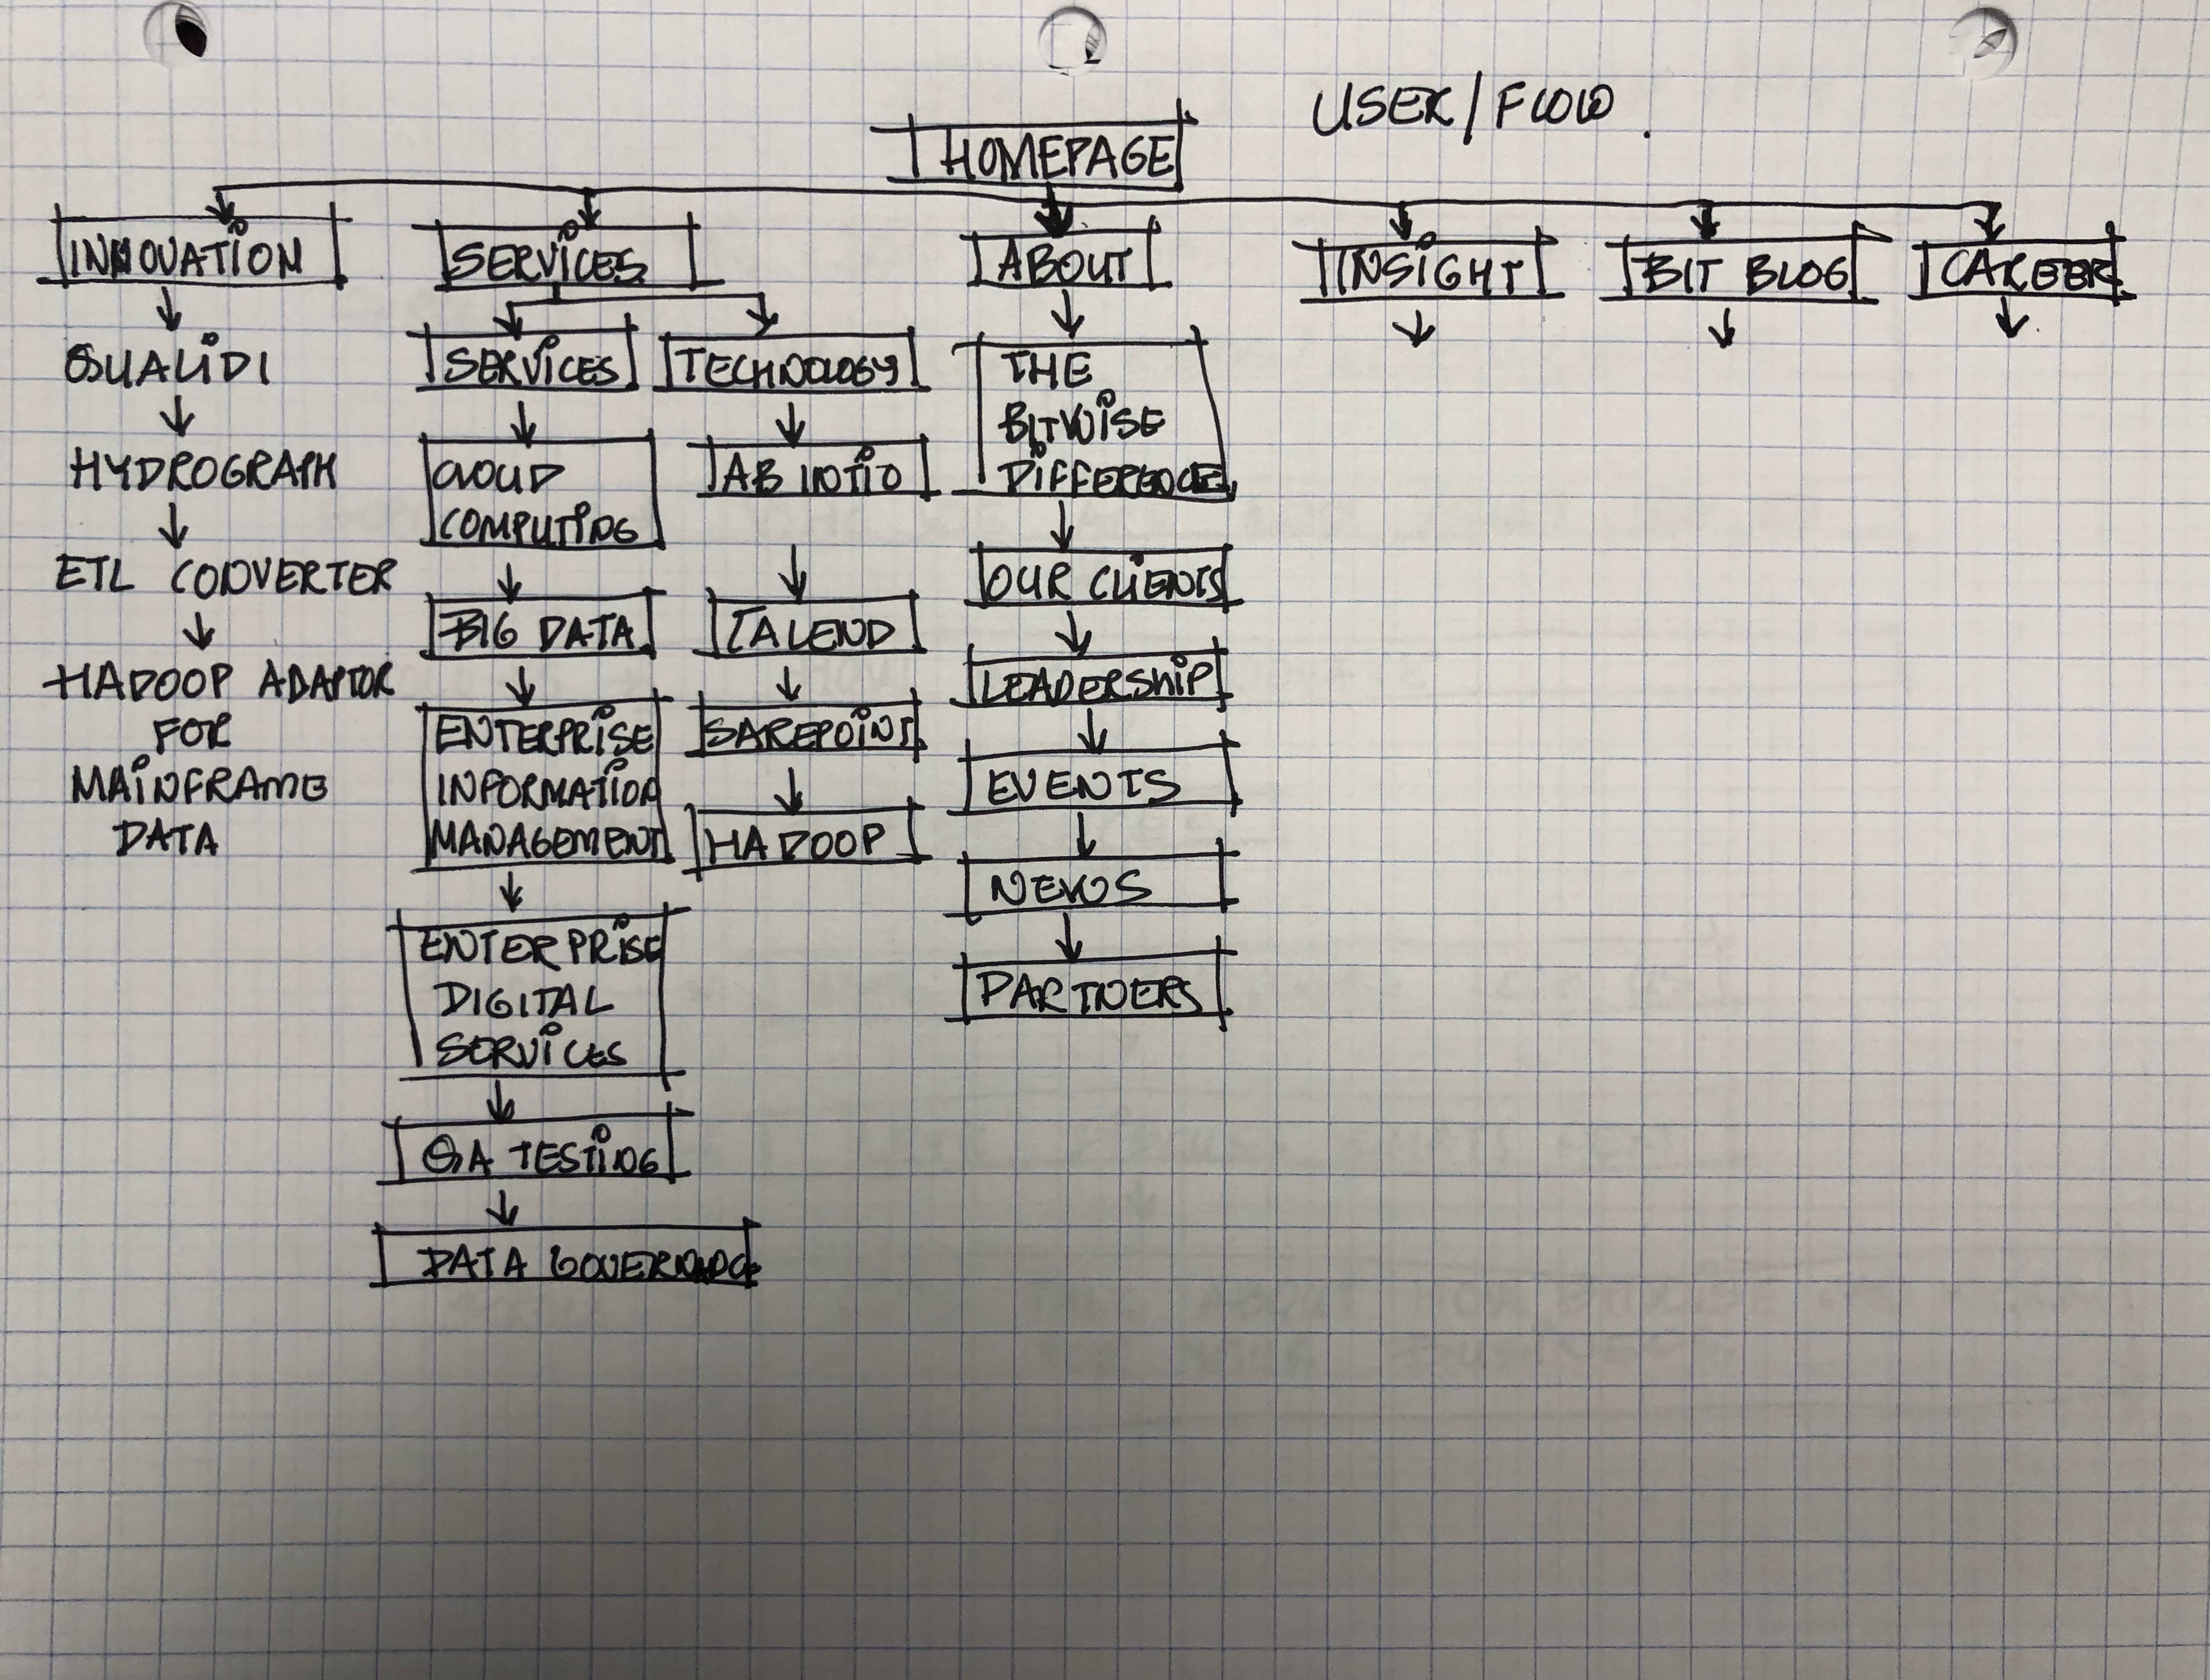 USER/FLOW
HOMEPAGE
INNOVATION
SERVICES
ABOUT
INSIGHT
BIT BLOG
CAREER
QUALIDI
HYDROGRAPH
ETL CONVERTER
HADOOP ADAPTOR
FOR
MAINFRAME
DATA
SERVICES
CLOUD
COMPUTING
BIG DATA
ENTERPRISE
INFORMATION
MANAGEMENT
ENTERPRISE
DIGITAL
SERVICES
QA TESTING
DATA
TECHNOLOGY
AB INTIO
TALEND
SAREPOINT
HADOOP
THE
BITWISE
DIFFERENCE
OUR CLIENTS
LEADERSHIP
EVENTS
NEWS
PARTNERS